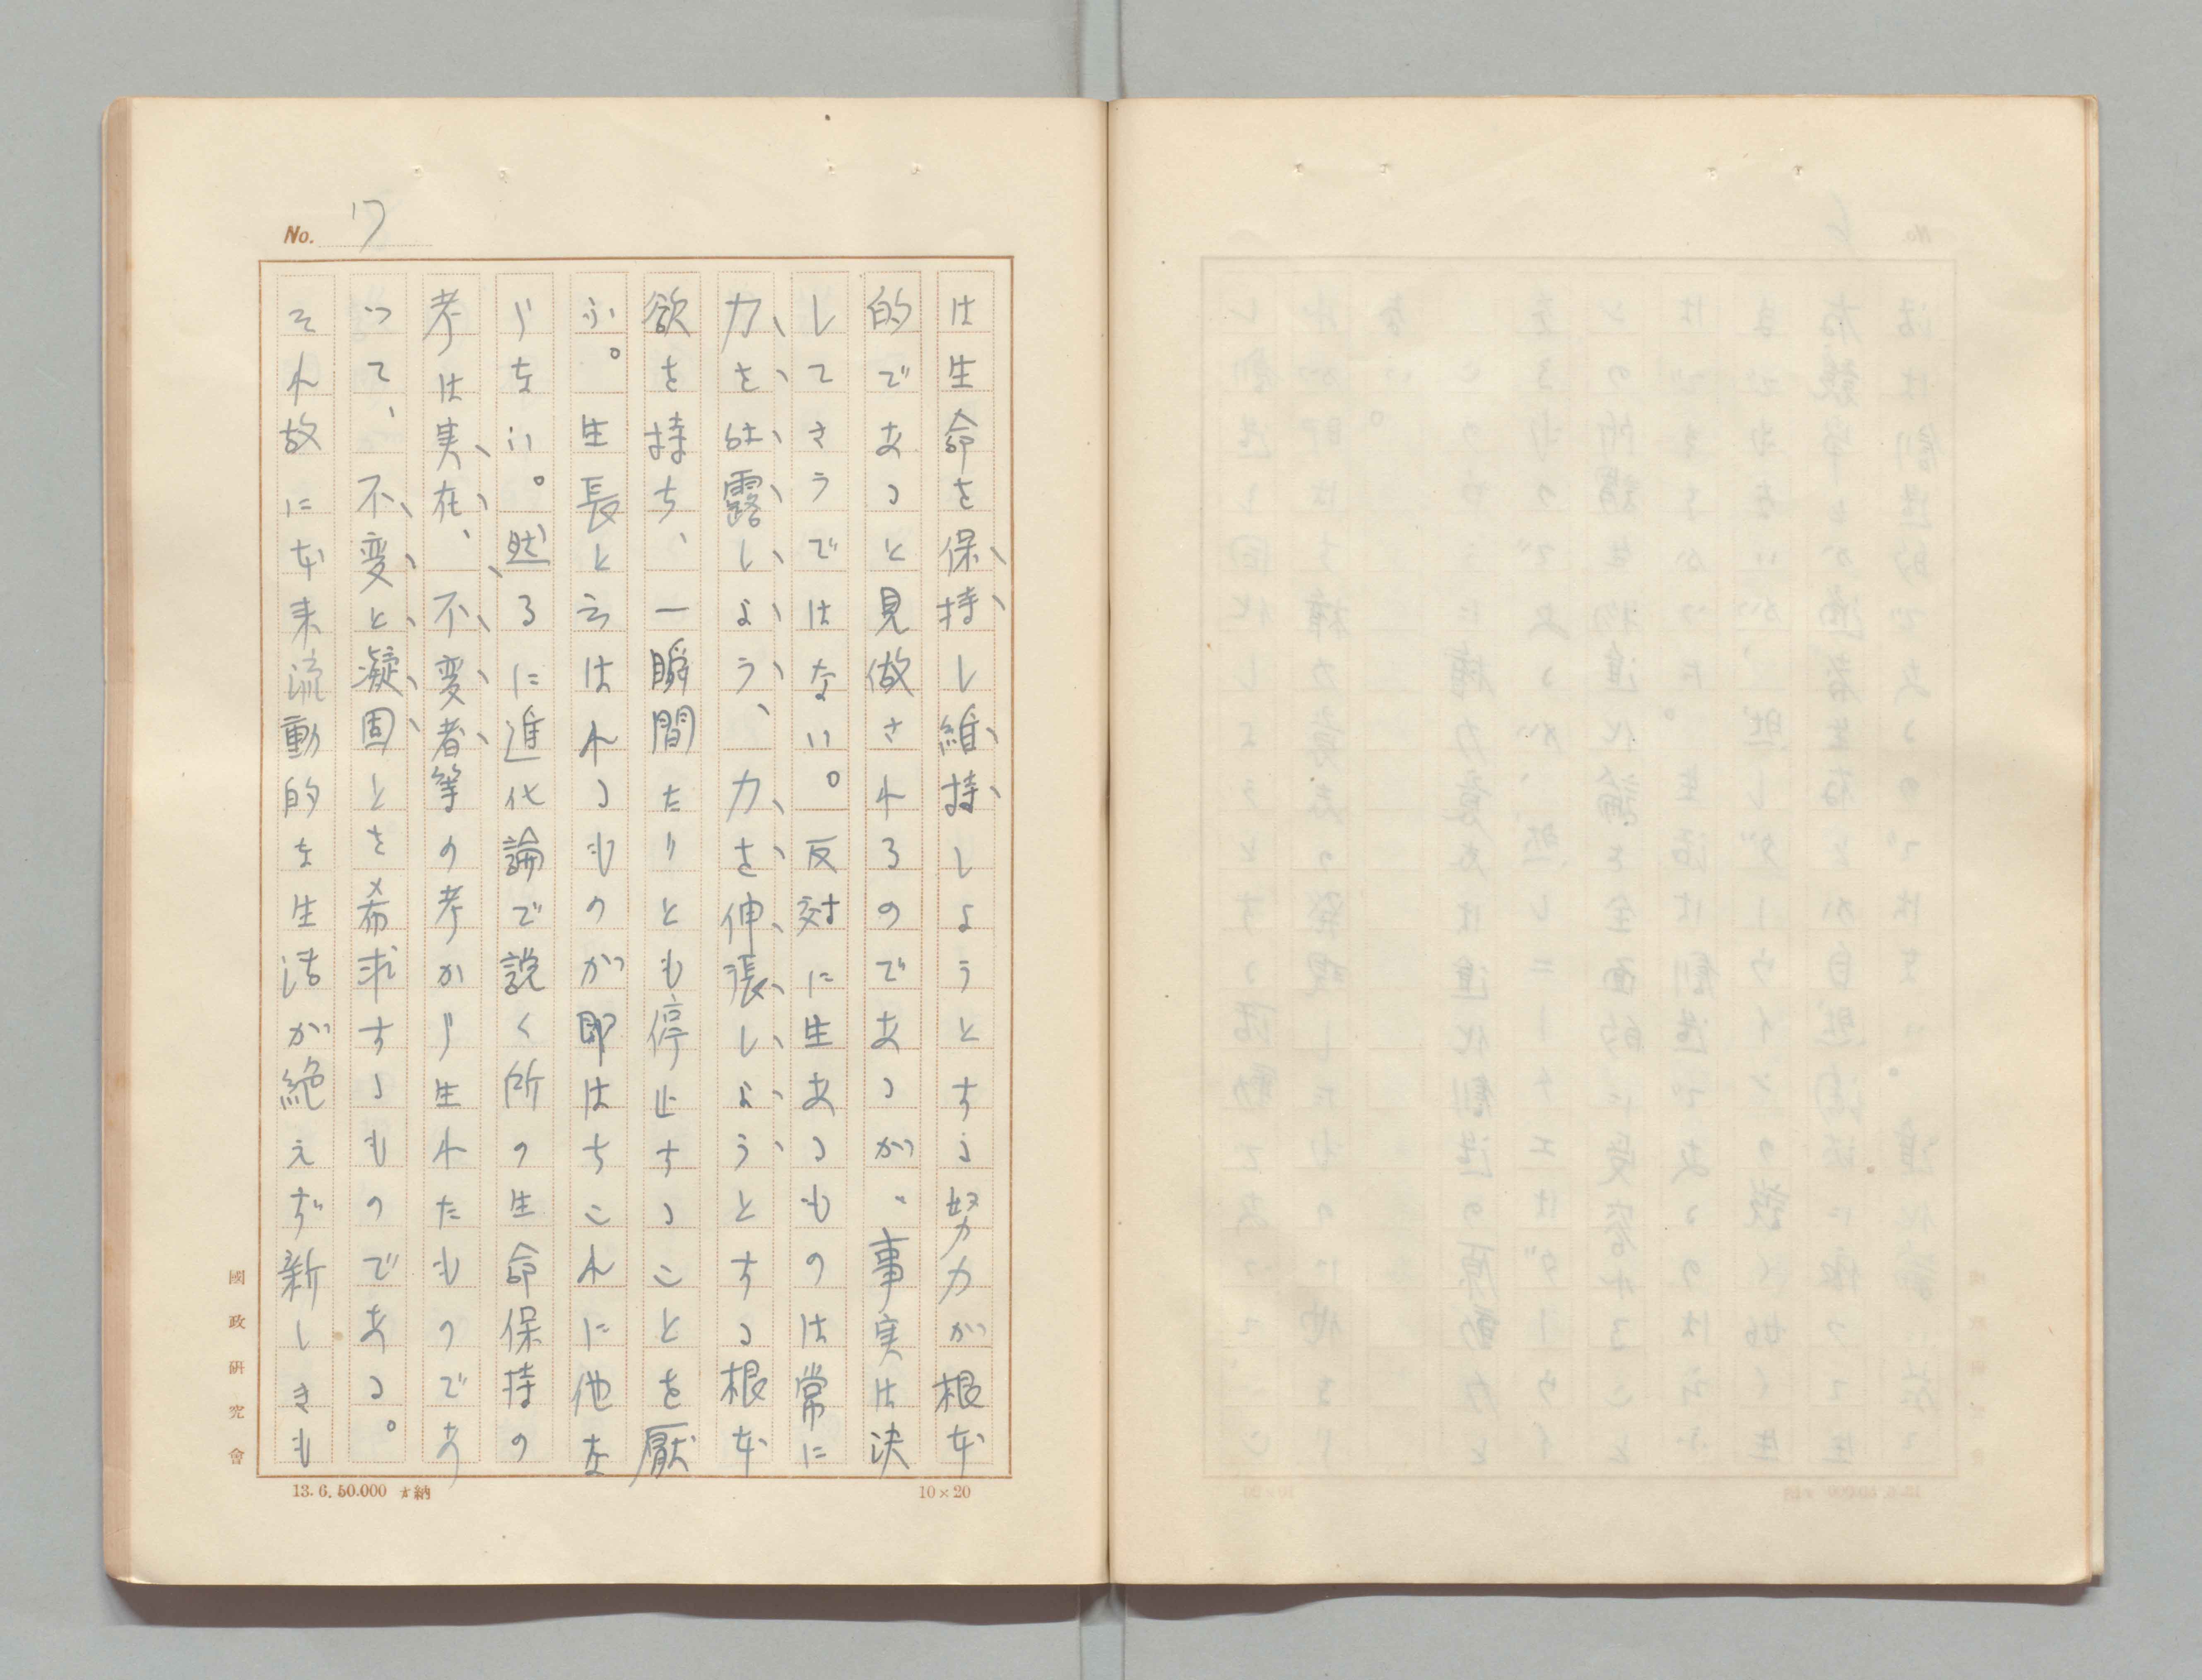 No. 17
は生命を保持し維持しようとする努力が根本
的であると見做されるのであるが、事実は決
してさうではない。反対に生あるものは常に
力を吐露しよう、力を伸張しようとする根本
欲を持ち、一瞬間たりとも停止することを厭
ふ。生長と云はれるものが即はちこれに他な
らない。然るに進化論で説く所の生命保持の
考は実在、不変者等の考から生れたものであ
つて、不変と凝固とを希求するものである。
それ故に本来流動的な生活が絶えず新しきも
國政研究會
13.6.50.000 納
10×20